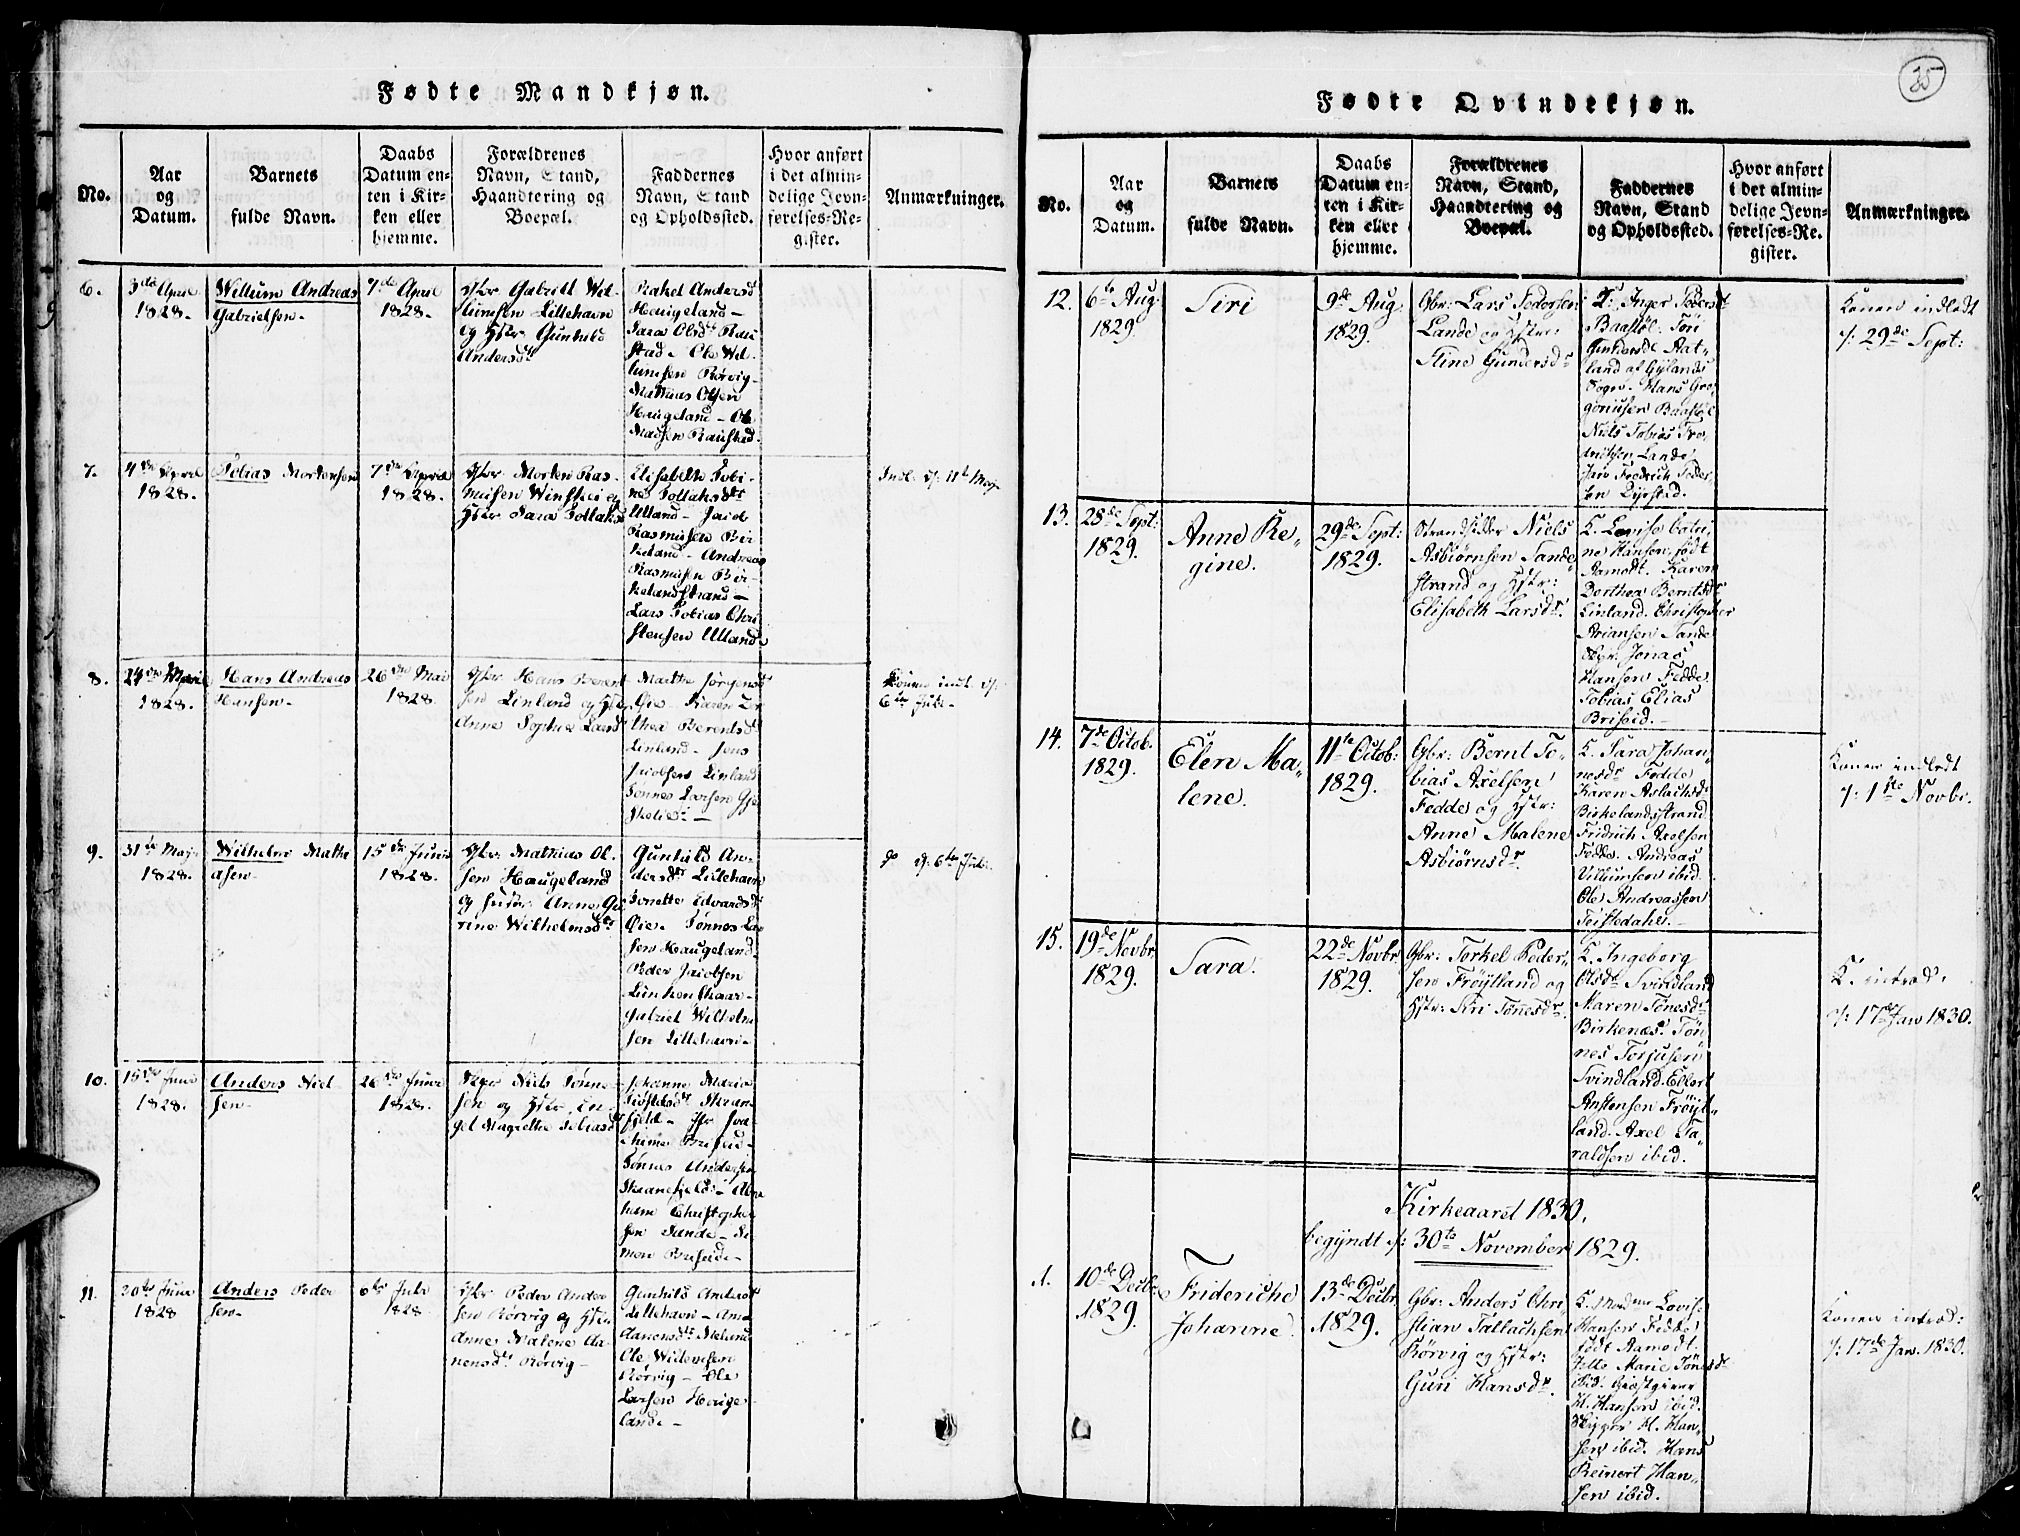 Fødte Mandkjøn.
No.
Aar
og
Datum.
Barnets
fulde Navn.
Daabs
Datum en-
ten i Kir-
ken eller
hjemme.
Forældrenes
Navn, Stand,
Haandtering og
Boepæl.
Faddernes
Navn, Stand
og Opholdssted.
Hvor anført
i det almin-
delige Jevn-
førelses-Re-
gister.
Anmærkninger.
6.
3die April
1828.
Willum Andreas
Gabrielsen.
7de April
1828.
Gabriel Wil-
lumsen Lillehavn
og Hstr Gunhild
Andersdtr
Rakel Andersd
Haugeland -
Sara Olsdtr Rau
stad. Ole Wil-
lumsen Rørvig -
Mathias Olsen
Haugeland - Ole
Madsen Raustad.
7.
4de April
1828.
Tobias Mortensen
7de April
1828.
Morten Ras-
musen Winstui og
Hstr Sara Tollaksd
Elisabeth Tobi-
ne Tollaksdtr
Ulland - Jacob
Rasmusen Bir-
keland - Andreas
Rasmusen Bir-
kelandstrand -
Lars Tobias Chri
stensen Ulland
Indl. d: 11te May
8.
1828.
Hans Andreas
Hansen.
26de Mai
1828.
Hans Berent
sen Linland og Hstr
Anne Sophie Larsd
Marthe Jørgensd
Øie - Karen Dor
thea Berentsd
Linland - Jens
Jacobsen Linland
Tønnes Larsen
Konen indl. d:
6te Juli.
9.
31te May
1828.
Wilhelm Mathi
asen.
15de Junii
1828.
Mathias Ol-
sen Haugeland
og Hustr. Anne
Wilhelmsdtr
Gunhild An-
dersdtr Lillehavn
Tonette Edvardsdr
Øie. Tønnes La
sen Haugeland
Peder Jacobsen
Gabriel Wilhelm
sen Lillehavn.
do d: 6te Juli.
10.
15de Junii
1828.
Anders Niel-
sen.
26de Junii
1828.
Niels Tønne-
sen og Hstr. In-
Johanne Maria
Tønnes Andersen
Skranefjeld - Abra
ham Christopher
sen Sande - Si
mon
11.
20de Junii
1828
Anders Peder
sen.
6te Juli
1828.
Peder Ander
sen Rørvig og Hstr
Anne Malene Aa-
nensdtr Rørvig -
Gunhild Andersdr
Lillehavn - Ane
Aanensdtr
Ole Willumsen
Rørvig - Ole
Larsen Hauge-
land -
35
Fødte Qvindekjøn.
No.
Aar
og
Datum.
Barnets
fulde Navn.
Daabs
Datum en-
ten i Kir-
ken eller
hjemme.
Forældrenes
Navn, Stand,
Haandtering og
Boepæl.
Faddernes
Navn, Stand
og Opholdssted.
Hvor anført
i det almin-
delige Jevn-
førelses-Re-
gister.
Anmærkninger.
12.
6te Aug.
1829.
Siri
9de Aug.
1829.
Gbr: Lars Pedersen
Lande og Hstr:
Stine Gundersdr.
Inger Pedersd
Baastøl. Siri
Gundersd. Aat-
land af Gylands
Sogn. Hans Gre-
goriusen Baastøl
Niels Tobias
Lande
Jens Fredrich Peder-
sen
13.
28de Sept:
1829.
Anne Re-
gine.
29de Sept:
1829.
Strandsidder Niels
Asbiørnsen Sande-
strand og Hstr:
Elisabeth Larsdr.
K. Lovise Catri-
ne Hansen, født
Aamodt. Karen
Dorthea Berntsdr
Linland. Christopher
Ariansen Sande
Skpr. Jonas
Hansen Fedde
Tobias Elias
14.
7de Octob.
1829.
Elen Ma-
lene.
11te Octob:
1829.
Gbr: Bernt To-
bias Axelsen
Fedde og Hstr:
Anne Malene
Asbiørnsdr.
K. Sara Johan-
nesdr Fedde
Karen Aslachsdr
Birkelandsstrand
Fridrich Axelsen
Fedde. Andreas
Villumsen ibid.
Ole Andreassen
Teistedahl. -
Konen indledt
d: 1ste Novbr.
Konen indledt
d: 29de Sept:
15.
19de Novbr.
1829.
Sara.
22de Novbr.
1829.
Gbr: Torkel Peder-
sen Frøytland og
Hstr: Siri Tønesdr.
K. Ingeborg
Olsdr Svindland
Maren Tønesdr
Birkenæs. Tøn-
nes Torjusen
Svindland. Ellert
Anstensen Frøyt-
land. Axel Ta-
raldsen ibid.
K. introd:
d: 17de Jan 1830.
Kirkeaaret 1830,
begyndt d: 30te November 1829.
1.
10de Decbr.
1829.
Frideriche
Johanne.
13de Decbr
1829.
Gbr: Anders Chri-
stian Tallachsen
Rørvig og Hstr:
Guri Hansdr.
K. Madme Lovis:
Hansen Fedde
født Aamodt.
Marie Tønesdr
ibid. Giestgiver
H. Hansen ibid.
Skipper H. Han-
sen ibid. Hans
Reinert Han-
sen ibid.
Konen introd:
d: 17de Jan. 1830.